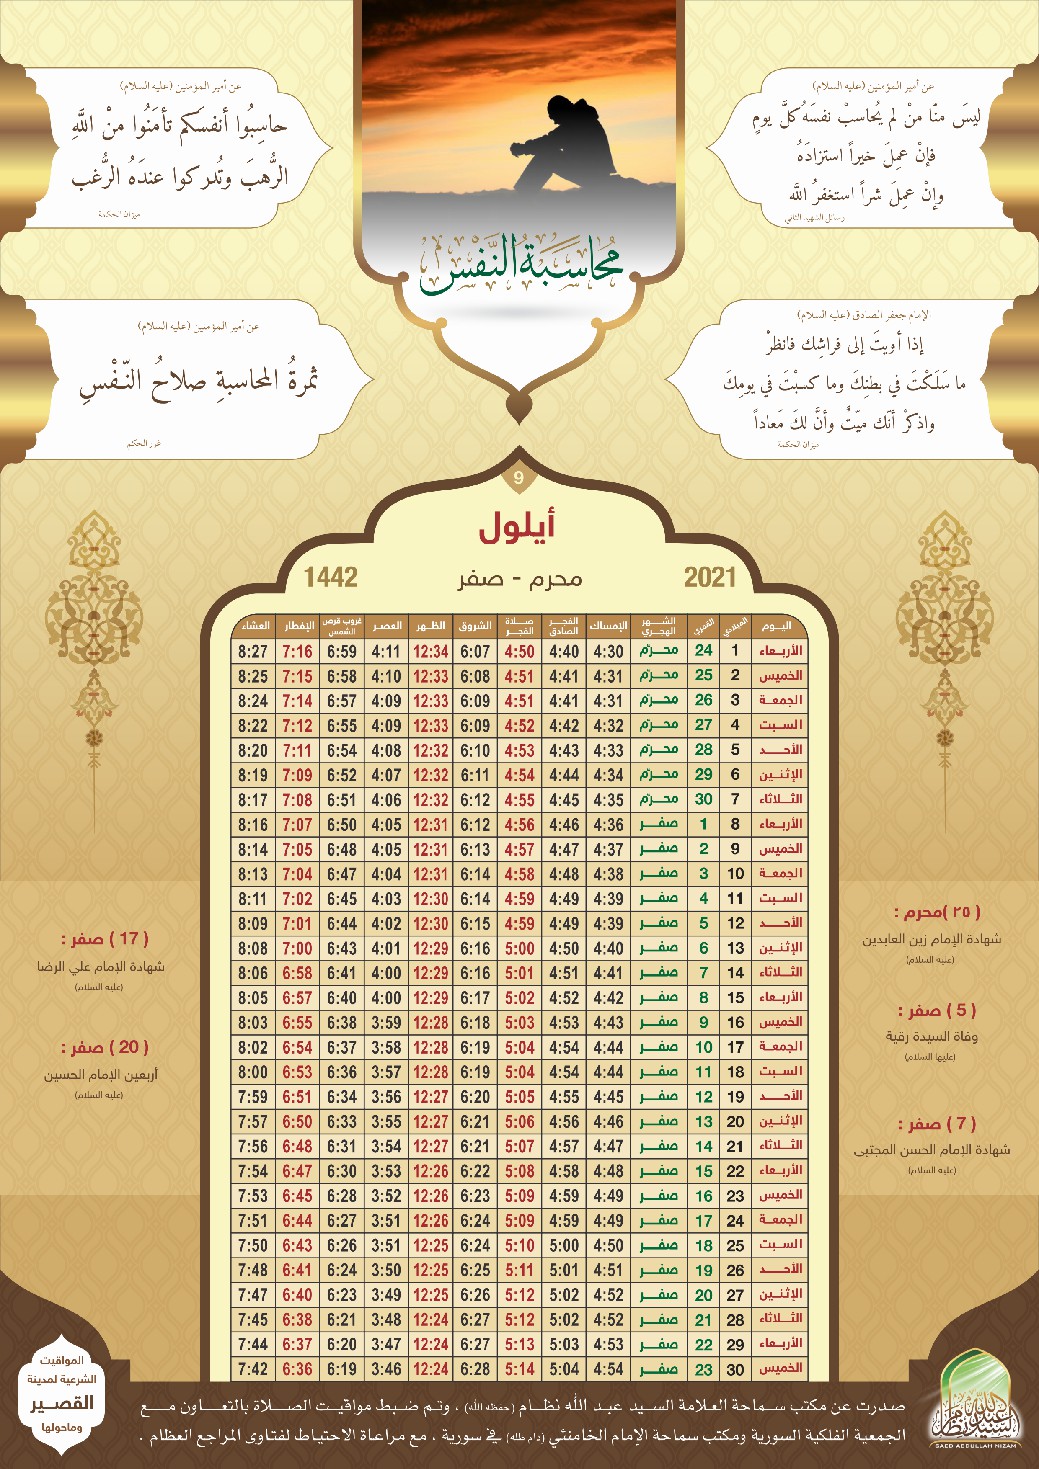 عن أمير المؤمنين (عليه السلام)
ليسَ منّا منْ لم يُحاسبْ نفسَهُ كلَّ يومٍ
فإنْ عمِلَ خيراً استزادَهُ
وإنْ عمِلَ شراً استغفرُ اللّه
رسائل الشهيد الثاني
عن أمير المؤمنين (عليه السلام)
حاسِبُوا أنفسَكم تأمَنُوا منْ اللَّهِ
الرُّهبَ وتُدركوا عندَهُ الرُّغب
ميزان الحكمة
محاسبة النَّفْس
الإمام جعفر الصادق (عليه السلام)
إذا أويتَ إلى فراشِك فانظرْ
ما سَلَكْتَ في بطنِكَ وما كسبْتَ في يومِكَ
واذكرْ أنّك ميّتٌ وأنَّ لكَ مَعاداً
ميزان الحكمة
عن أمير المؤمنين (عليه السلام)
ثمرةُ المحاسبةِ صلاحُ النّفْسِ
غرر الحكم
9
أيلول
2021 محرم - صفر 1442
اليوم الميلادي القمري الشهر الهجري الإمساك الفجر الصادق صلاة الفجر الشروق الظهر العصر غروب قرص الشمس الإفطار العشاء
الأربعاء 1 24 محرم 4:30 4:40 4:50 6:07 12:34 4:11 6:59 7:16 8:27
الخميس 2 25 محرم 4:31 4:41 4:51 6:08 12:33 4:10 6:58 7:15 8:25
الجمعة 3 26 محرم 4:31 4:41 4:51 6:09 12:33 4:09 6:57 7:14 8:24
السبت 4 27 محرم 4:32 4:42 4:52 6:09 12:33 4:09 6:55 7:12 8:22
الأحد 5 28 محرم 4:33 4:43 4:53 6:10 12:32 4:08 6:54 7:11 8:20
الإثنين 6 29 محرم 4:34 4:44 4:54 6:11 12:32 4:07 6:52 7:09 8:19
الثلاثاء 7 30 محرم 4:35 4:45 4:55 6:12 12:32 4:06 6:51 7:08 8:17
الأربعاء 8 1 صفر 4:36 4:46 4:56 6:12 12:31 4:05 6:50 7:07 8:16
الخميس 9 2 صفر 4:37 4:47 4:57 6:13 12:31 4:05 6:48 7:05 8:14
الجمعة 10 3 صفر 4:38 4:48 4:58 6:14 12:31 4:04 6:47 7:04 8:13
السبت 11 4 صفر 4:39 4:49 4:59 6:14 12:30 4:03 6:45 7:02 8:11
الأحد 12 5 صفر 4:39 4:49 4:59 6:15 12:30 4:02 6:44 7:01 8:09
الإثنين 13 6 صفر 4:40 4:50 5:00 6:16 12:29 4:01 6:43 7:00 8:08
الثلاثاء 14 7 صفر 4:41 4:51 5:01 6:16 12:29 4:00 6:41 6:58 8:06
الأربعاء 15 8 صفر 4:42 4:52 5:02 6:17 12:29 4:00 6:40 6:57 8:05
الخميس 16 9 صفر 4:43 4:53 5:03 6:18 12:28 3:59 6:38 6:55 8:03
الجمعة 17 10 صفر 4:44 4:54 5:04 6:19 12:28 3:58 6:37 6:54 8:02
السبت 18 11 صفر 4:44 4:54 5:04 6:19 12:28 3:57 6:36 6:53 8:00
الأحد 19 12 صفر 4:45 4:55 5:05 6:20 12:27 3:56 6:34 6:51 7:59
الإثنين 20 13 صفر 4:46 4:56 5:06 6:21 12:27 3:55 6:33 6:50 7:57
الثلاثاء 21 14 صفر 4:47 4:57 5:07 6:21 12:27 3:54 6:31 6:48 7:56
الأربعاء 22 15 صفر 4:48 4:58 5:08 6:22 12:26 3:53 6:30 6:47 7:54
الخميس 23 16 صفر 4:49 4:59 5:09 6:23 12:26 3:52 6:28 6:45 7:53
الجمعة 24 17 صفر 4:49 4:59 5:09 6:24 12:26 3:51 6:27 6:44 7:51
السبت 25 18 صفر 4:50 5:00 5:10 6:24 12:25 3:51 6:26 6:43 7:50
الأحد 26 19 صفر 4:51 5:01 5:11 6:25 12:25 3:50 6:24 6:41 7:48
الإثنين 27 20 صفر 4:52 5:02 5:12 6:26 12:25 3:49 6:23 6:40 7:47
الثلاثاء 28 21 صفر 4:52 5:02 5:12 6:27 12:24 3:48 6:21 6:38 7:45
الأربعاء 29 22 صفر 4:53 5:03 5:13 6:27 12:24 3:47 6:20 6:37 7:44
الخميس 30 23 صفر 4:54 5:04 5:14 6:28 12:24 3:46 6:19 6:36 7:42
( ٢٥ )محرم :
شهادة الإمام زين العابدين
(عليه السلام)
( 5 ) صفر :
وفاة السيدة رقية
(عليها السلام)
( 7 ) صفر :
شهادة الإمام الحسن المجتبى
(عليه السلام)
( 17 ) صفر :
شهادة الإمام علي الرضا
(عليه السلام)
( 20 ) صفر :
أربعين الإمام الحسين
(عليه السلام)
المواقيت
الشرعية لمدينة
القصير
وماحولها
صدرت عن مكتب سماحة العلامة السيد عبد الله نظام (حفظه الله) ، وتم ضبط مواقيت الصلاة بالتعاون مع
الجمعية الفلكية السورية ومكتب سماحة الإمام الخامنئي (دام ظله) في سورية ، مع مراعاة الاحتياط لفتاوى المراجع العظام .
SAED ABDULLAH NIZAM